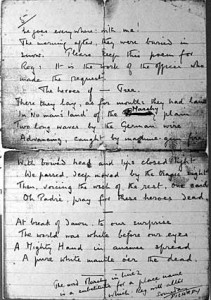 he goes everywhere with me!
The morning after, they were buried in
snow. Please keep this poem for
Roy. It is the work of the officer who
made the request.
The heroes of — Tera.
There they lay, as for months they had laid
In No man's land of the Marshy plain
Two long waves by the German wire
Advancing, caught by machine-gun fire
With bowed head and lips closed tight
We passed, deep moved by the tragic sight
Then, voicing the wish of the rest, one said
Oh Padre, pray for these heroes dead,
At break of Dawn to our surprise
The world was white before our eyes
A Mighty Hand in answer spread
A pure white mantle o'er the dead.
The word Marshy in line 2
is a substitute for a place name
which Roy will